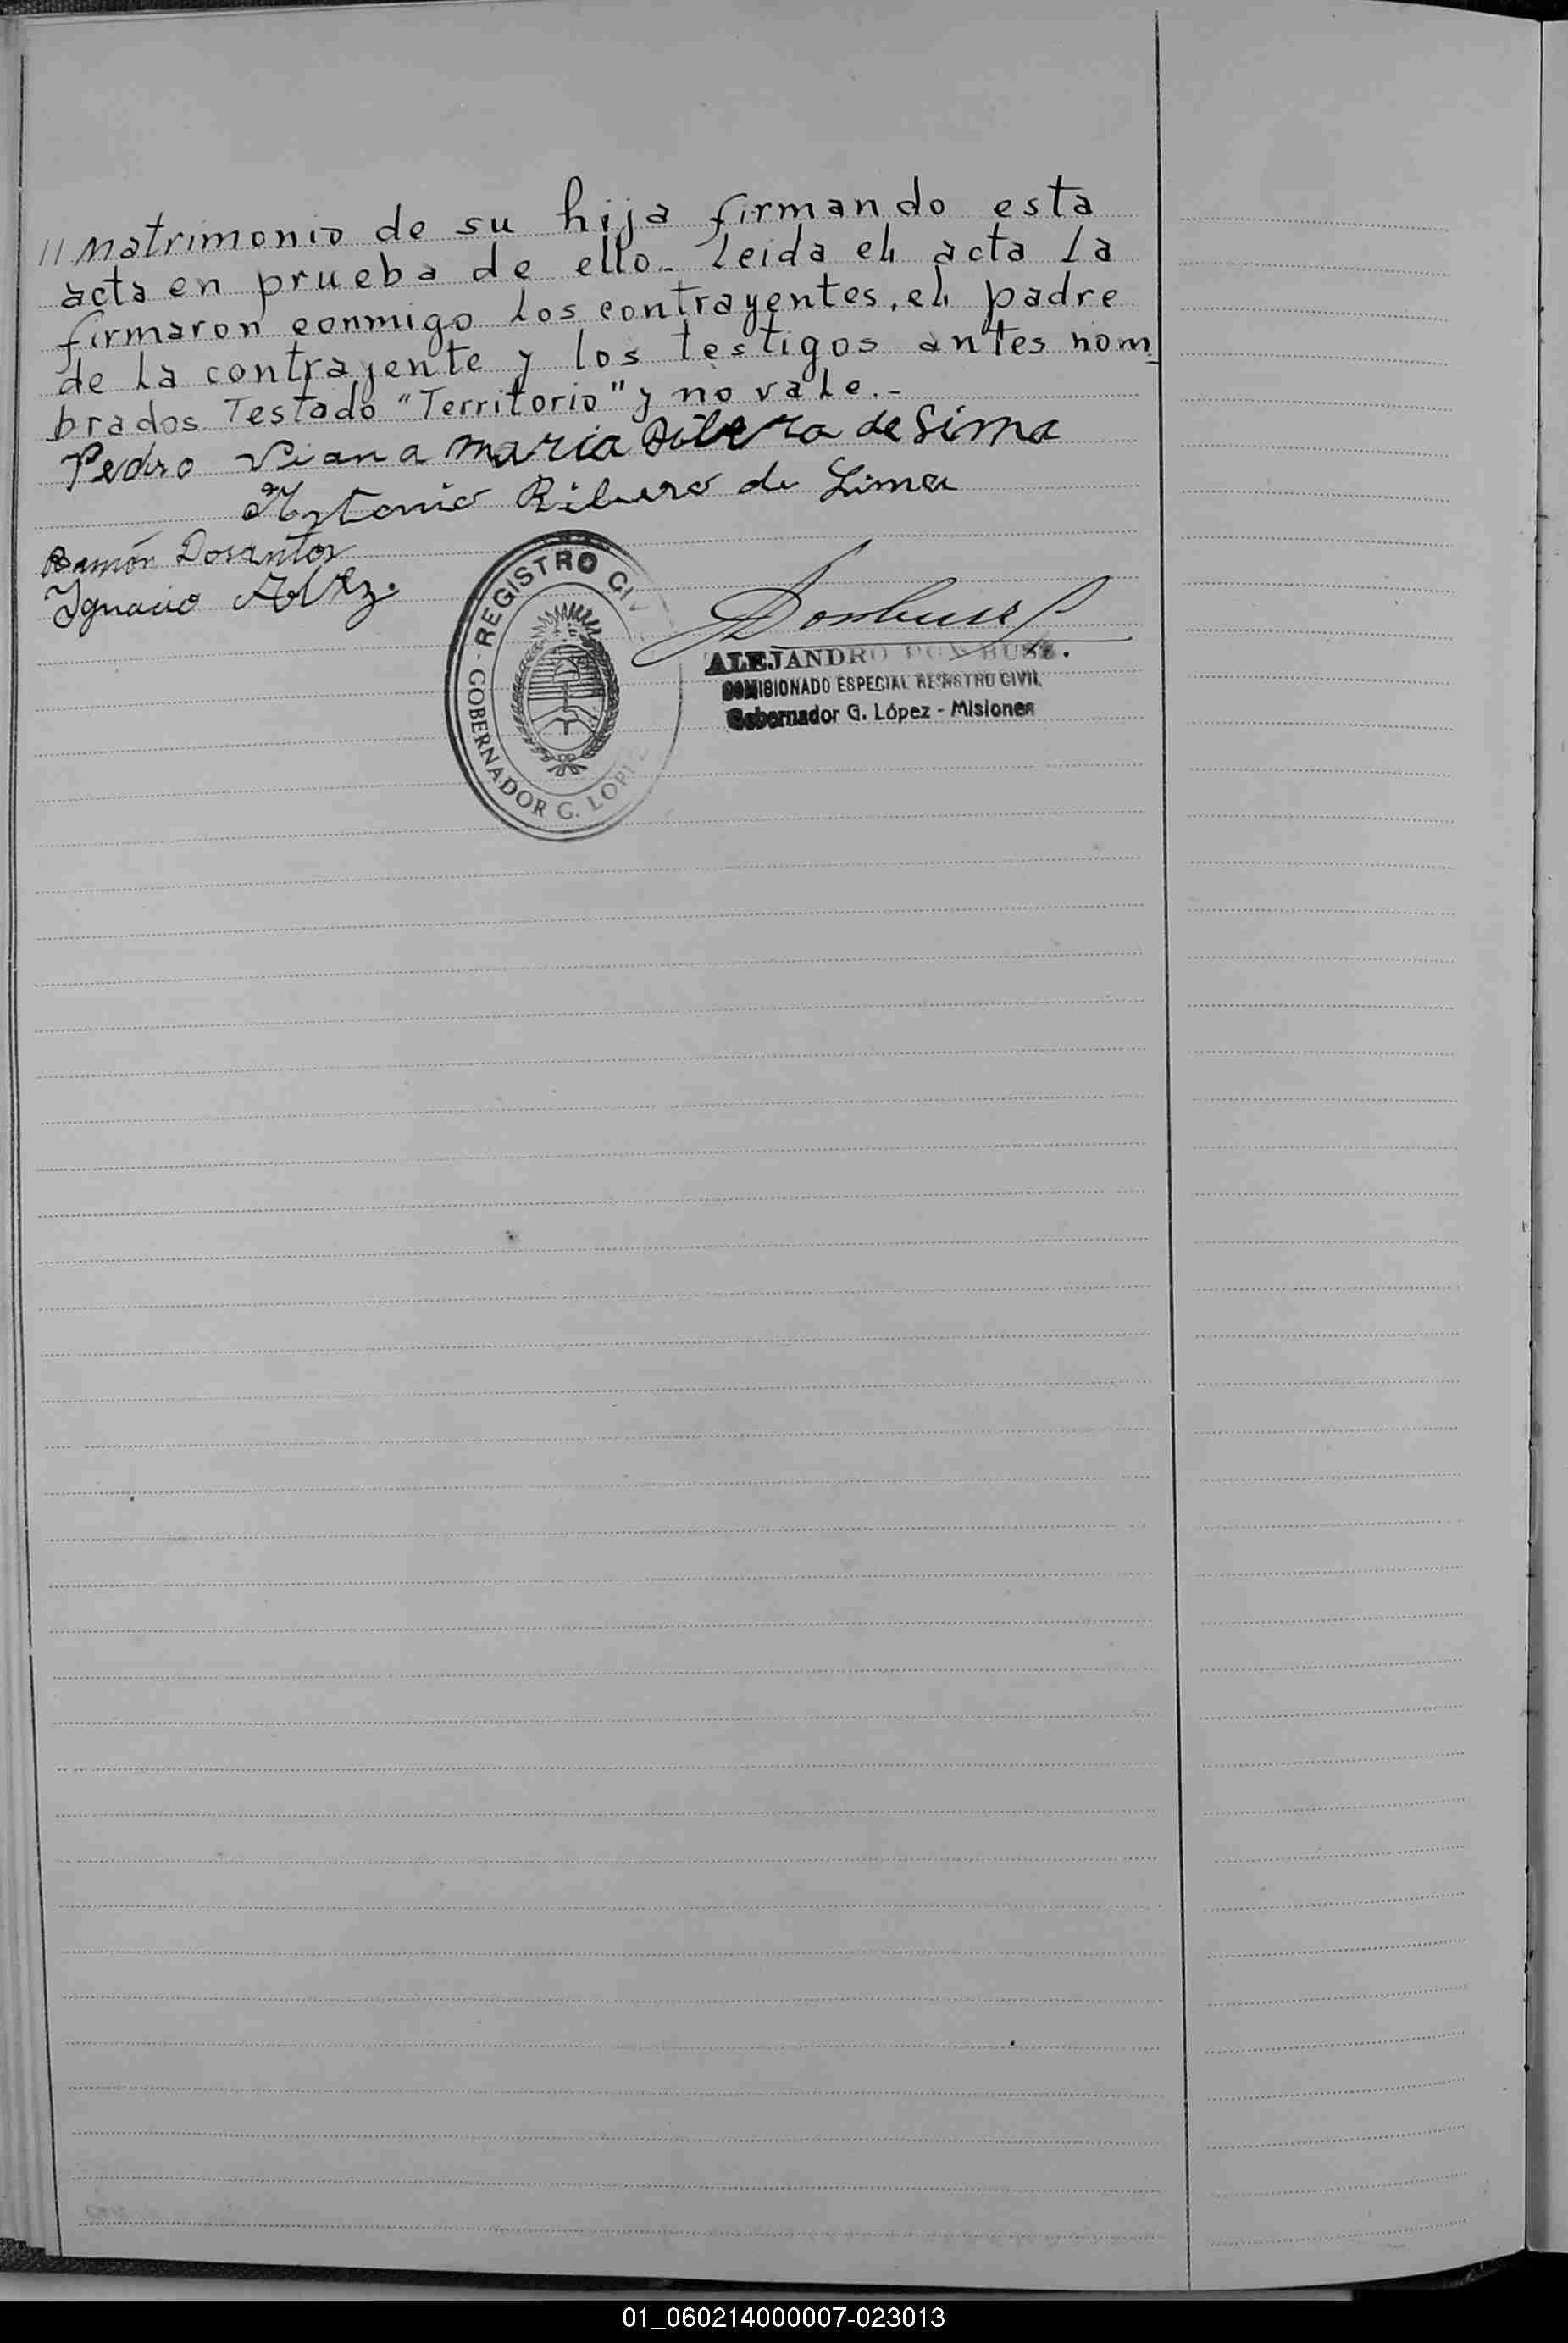 // Matrimonio de su hija firmando esta
acta en prueba de ello.- Leida el acta la
firmaron conmigo los contrayentes, el padre
de la contrayente y los testigos antes nom_
brados Testado "Territorio" y no vale.-
Pedro Viana maria Ribero de Lima
Antonio Ribero de Lima
Ramón Dosantos
Ignacio Alvez.
REGISTRO CIVIL
GOBERNADOR G. LOPEZ
Dombusz
ALEJANDRO DOMBUSZ.
COMISIONADO ESPECIAL REGISTRO CIVIL
Gobernador G. López - Misiones
01_060214000007-023013